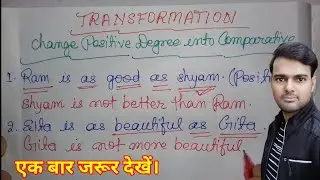 TRANSFORMATION
Change Positive Degree into Comparative
1. Ram is as good as shyam. (Posit
Shyam is not better than Ram.
2. Sita is as beautiful as Gita.
Gita is not more beautiful
एक बार जरूर देखें।